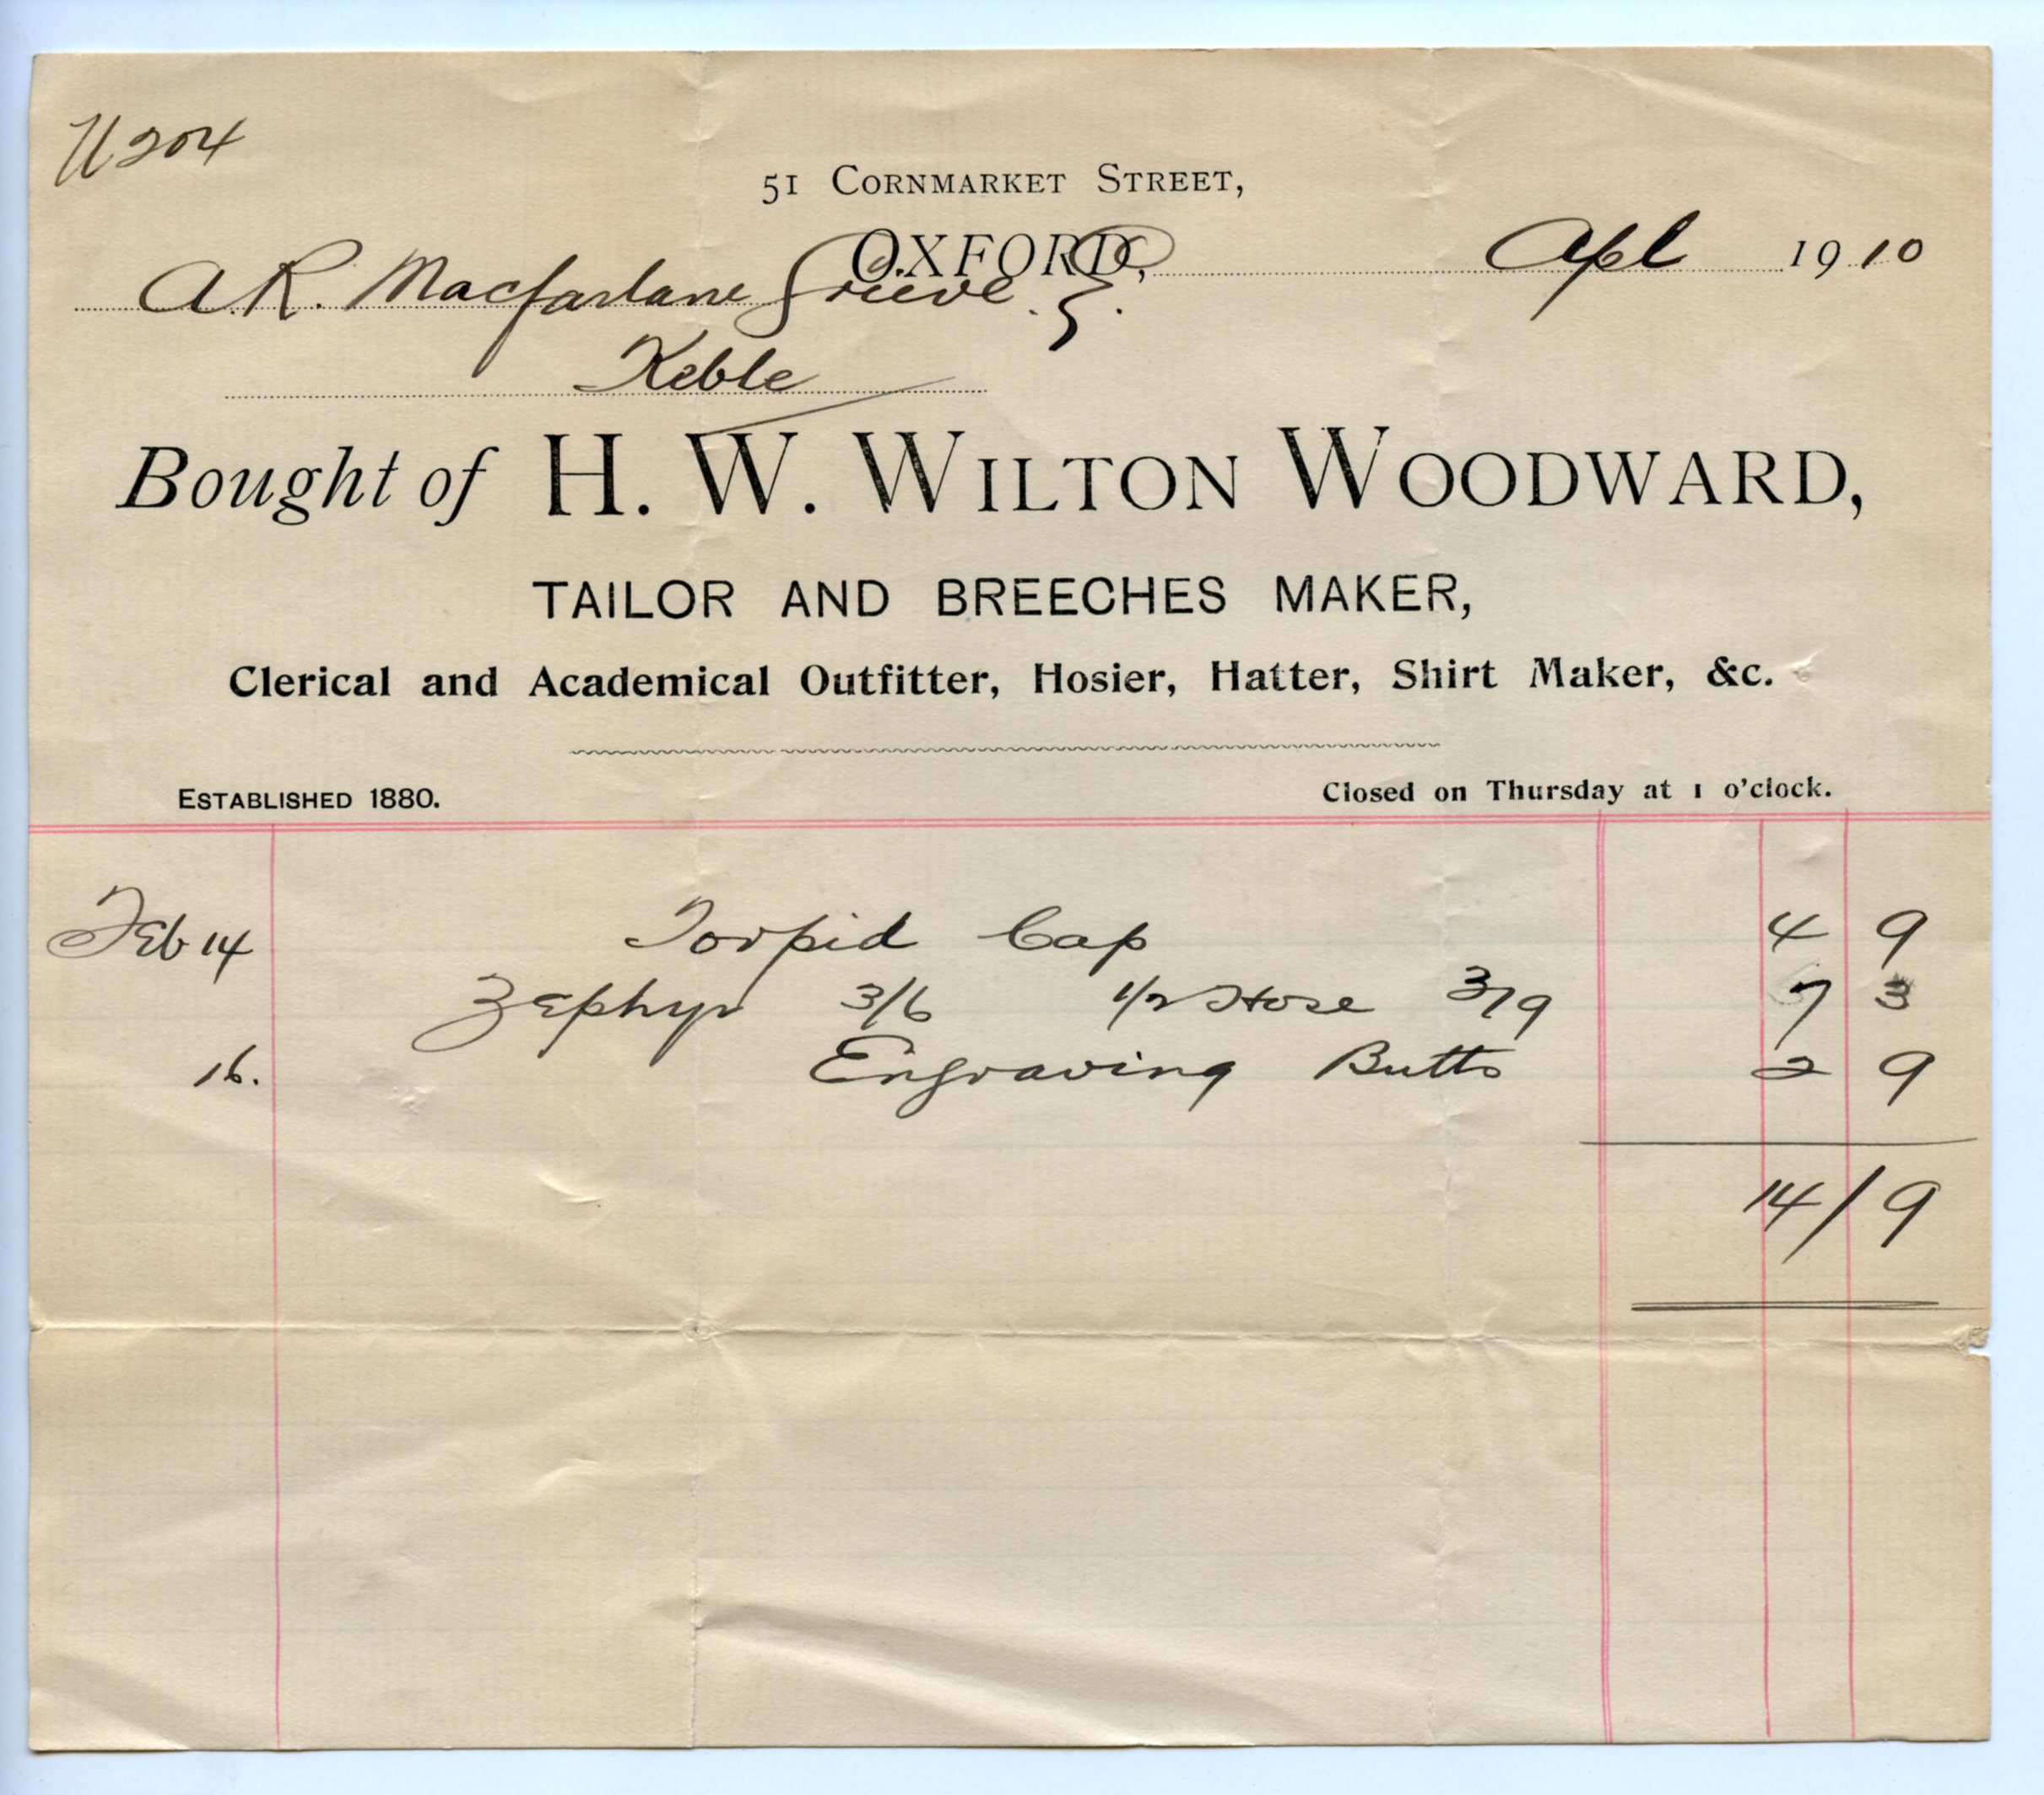 U204
51 CORNMARKET STREET,
OXFORD, Apl 1910
A.R. Macfarlane Grieve. Esq.
Keble
Bought of H. W. WILTON WOODWARD,
TAILOR AND BREECHES MAKER,
Clerical and Academical Outfitter, Hosier, Hatter, Shirt Maker, &c.
ESTABLISHED 1880. Closed on Thursday at 1 o'clock.
Feb 14 Torpid Cap 4 9
Zephyr 3/6 1/2 Hose 3/9 7 3
16. Engraving Butts 2 9
14/9